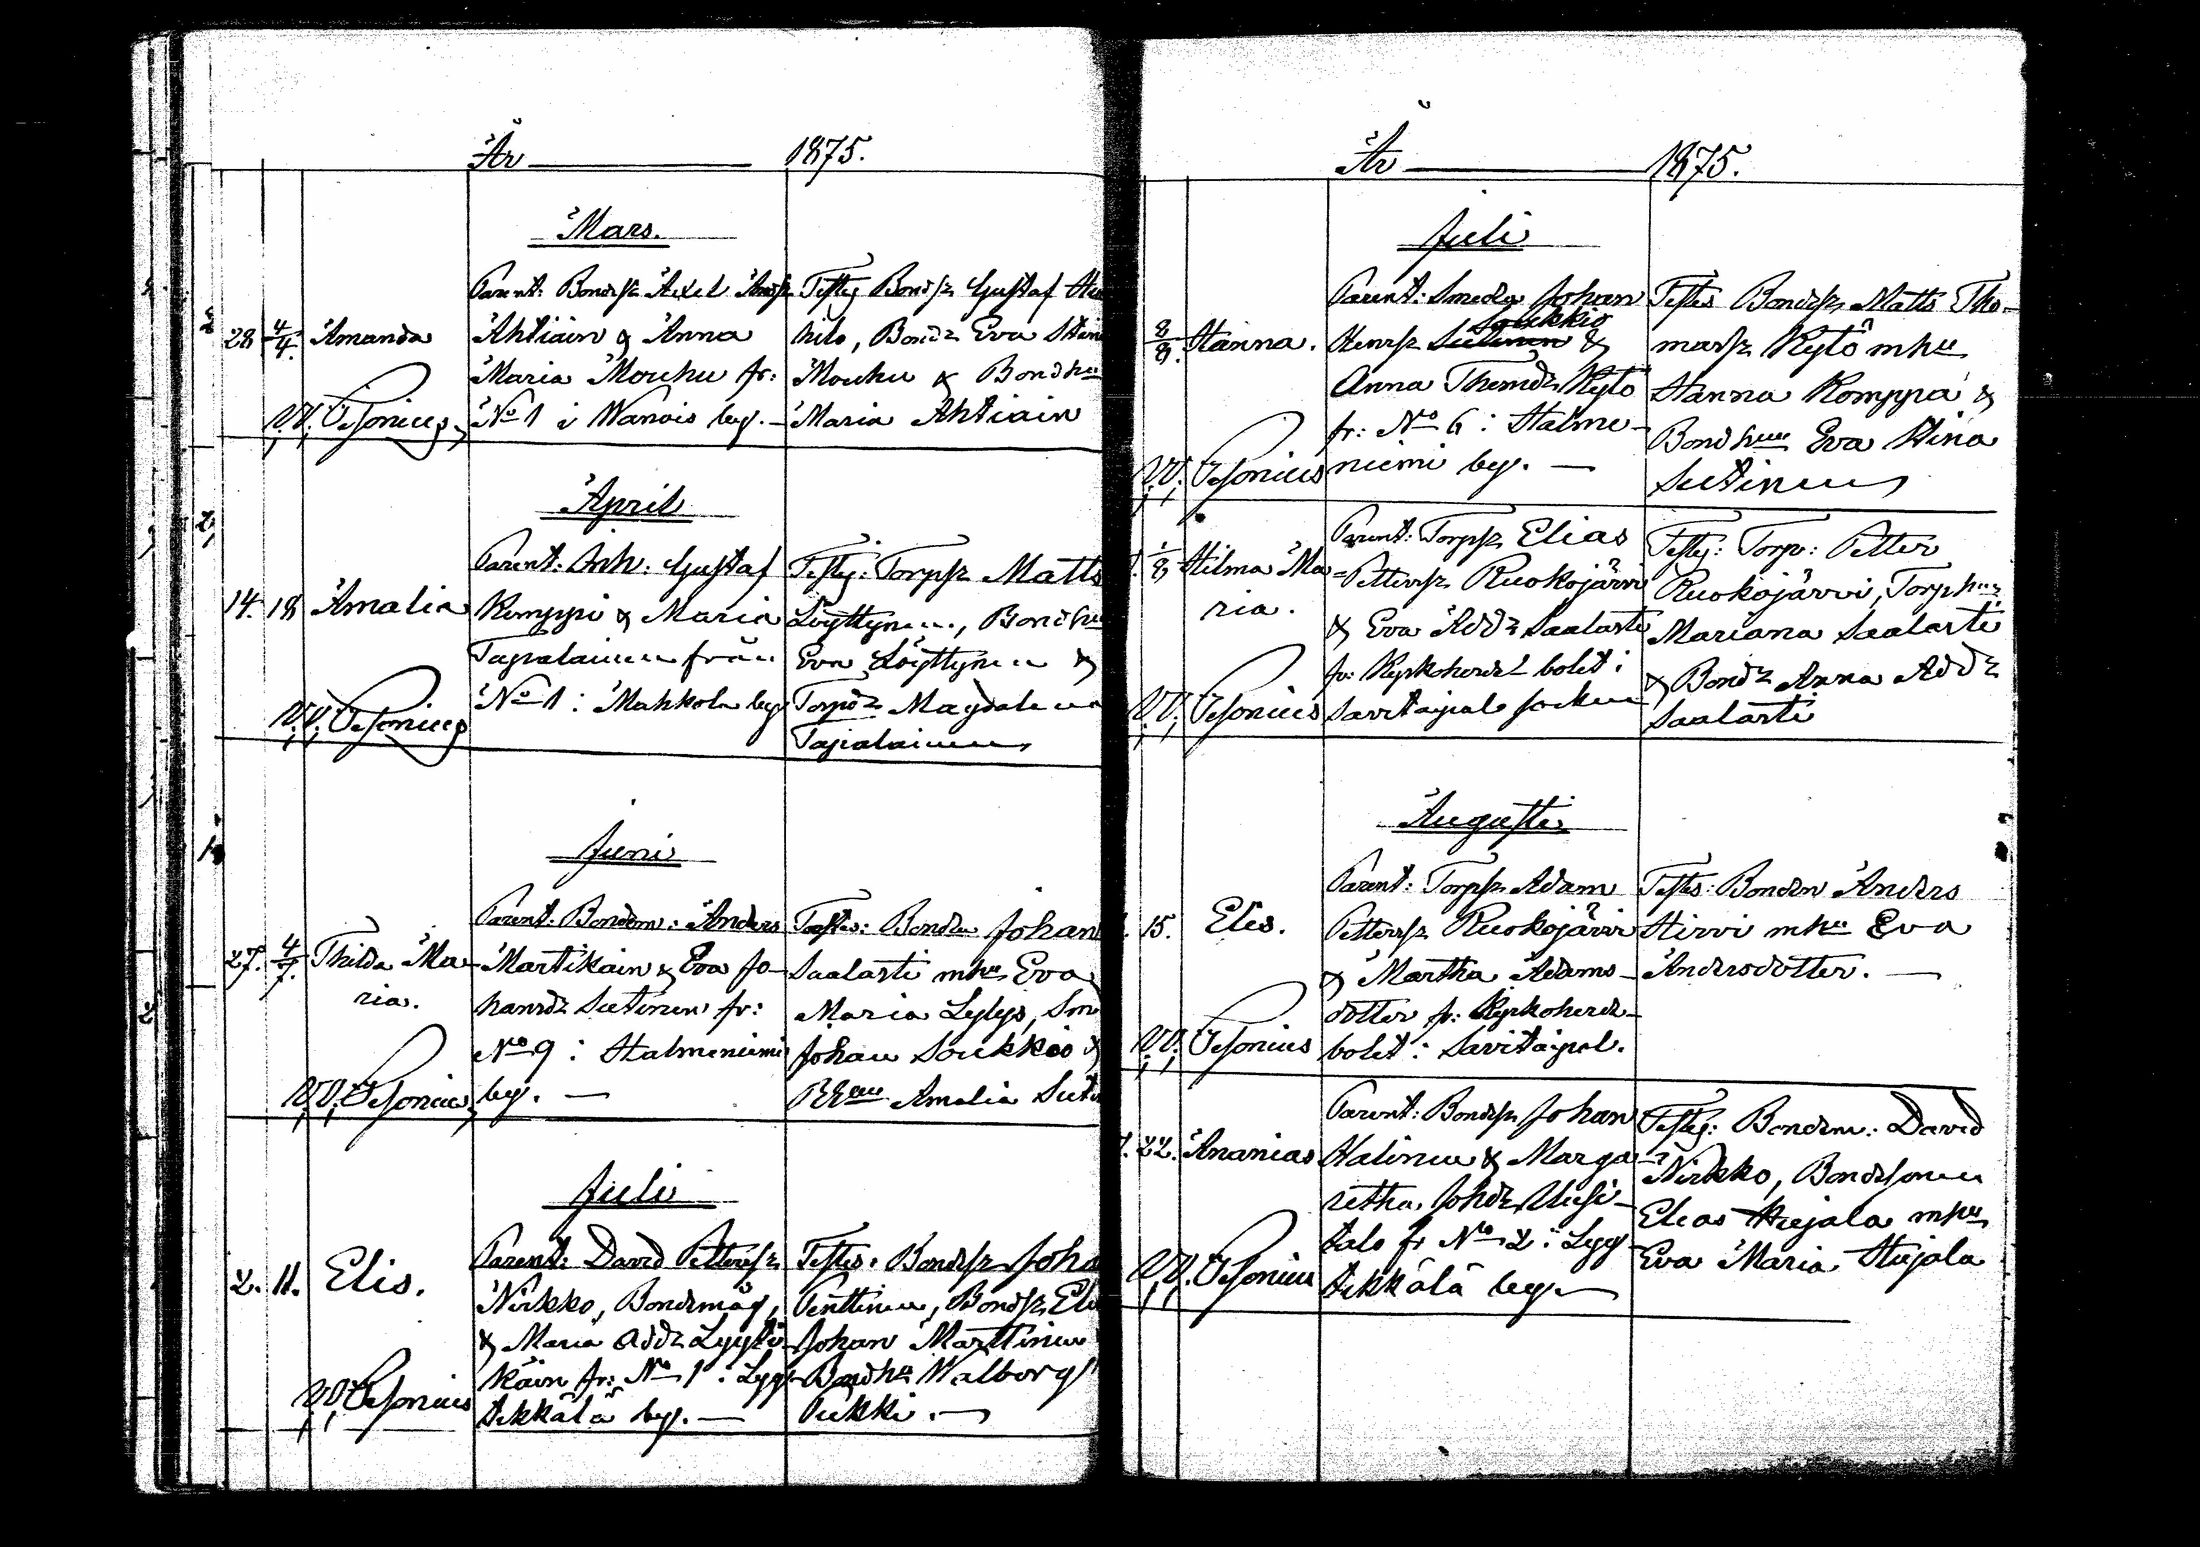 År 1875.
Mars.
28 4/4. Amanda
Parent: Bondess Axel Andss
Ahtiain & Anna
Maria Mouhu fr:
No 1 i Wanois by. –
Testes Bondss Gustaf
hilo, Bondd Eva Stina
Mouhu & Bondhu
Maria Ahtiain
V. V. Pesonius
April
14. 18 Amalia
Parent: Inh: Gustaf
Kemppi & Maria
Tapalainen från
No 1: Mahkola by
Testes: Torpss Matts
Löyttynen, Bondhu
Eva Löyttynen &
Torpd Magdalena
Tapalainen
V. V. Pesonius
Juni
27. 4/7. Thilda Ma-
ria.
Parent: Bondem: Anders
Martikain & Eva Jo-
hansd Sutinen fr:
No 9: Halmeniemi
by. –
Testes: Bonden Johan
Saalasti mhu Eva
Maria Lylys, Sm
Johan Soukkio &
Amalia
V. V. Pesonius
Juli
2. 11. Elis.
Parent: David Petterss
Nirkko, Bondemåg,
& Maria Add Lyyti-
käin fr: No 1: Lyy-
tikkälä by. –
Testes: Bondess
Penttinen, Bondss
Johan Marttinen
Bondhu Walborg
Pukki. –
V. V. Pesonius
År 1875.
Juli
8/8. Hanna.
Parent: Smeden Johan
Soukkio
Henrss Sutinen &
Anna Thomsd Kylö
fr: No 6: Halme-
niemi by. –
Testes Bondss Matts Tho-
mass Kylö mhu
Hanna Komppa &
Bondhun Eva Stina
Sutinen
V. V. Pesonius
1/8 Hilma Ma-
ria.
Parent: Torpss Elias
Petterss Ruokojärvi
& Eva Add Saalasti
fr: Kyrkoherd bolet i
Savitaipale socken
Testes: Torp: Petter
Ruokojärvi, Torphu
Mariana Saalasti
& Bondd Anna Add
Saalasti
V. V. Pesonius
Augusti
15. Elis.
Parent: Torpss Adam
Petterss Ruokojärvi
& Martha Adams-
dotter fr: Kyrkoherde-
bolet: Savitaipal.
Testes: Bonden Anders
Hirvi mhu Eva
Andersdotter. –
V. V. Pesonius
22. Ananias
Parent: Bondss Johan
Halinen & Marga-
retha Johd Uusi-
talo fr No 2: Lyy-
tikkälä by –
Testes: Bondem: David
Nirkko, Bondesonen
Elias Hujala mhu
Eva Maria Hujala
V. V. Pesonius